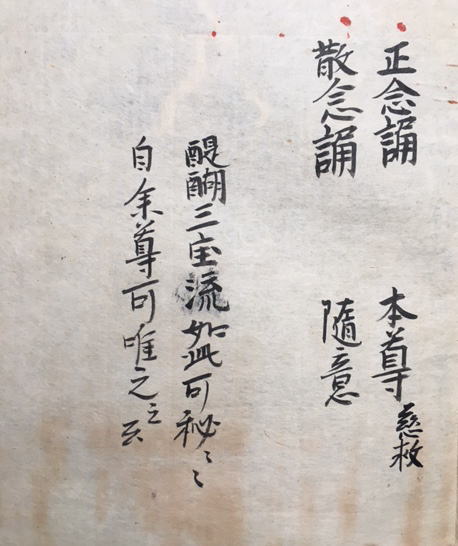 正念誦 本尊 慈救
散念誦 隨意
醍醐三宝流如此可秘〻〻
自余尊可唯之云云